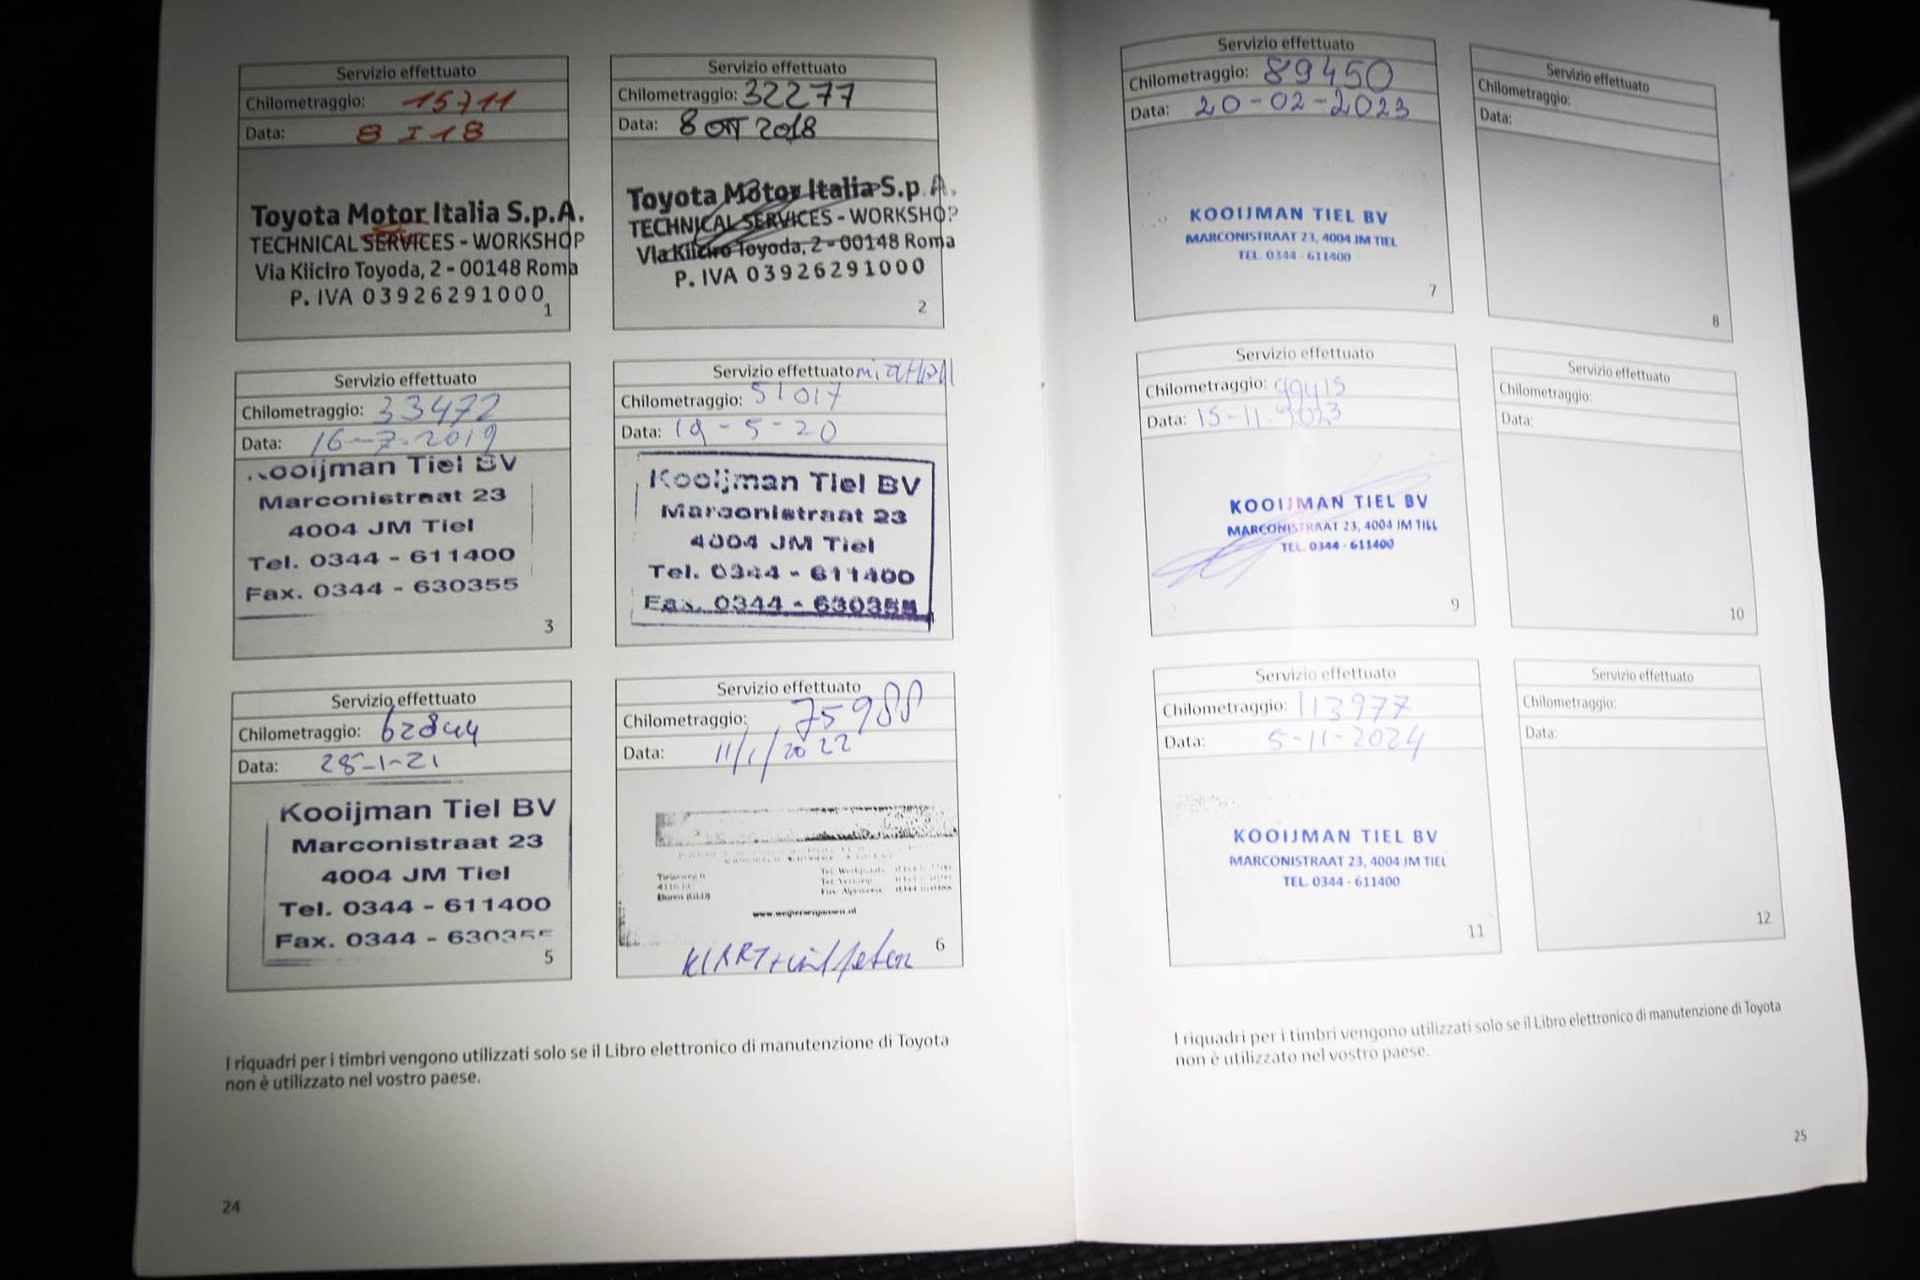 Servizio effettuato
Chilometraggio: 15711
Data: 8 I 18
Toyota Motor Italia S.p.A.
TECHNICAL SERVICES - WORKSHOP
Via Kiiciro Toyoda, 2 - 00148 Roma
P. IVA 03926291000
1
Servizio effettuato
Chilometraggio: 32277
Data: 8 OTT 2018
Toyota Motor Italia S.p.A.
TECHNICAL SERVICES - WORKSHOP
Via Kiiciro Toyoda, 2 - 00148 Roma
P. IVA 03926291000
2
Servizio effettuato
Chilometraggio: 33472
Data: 16-7-2019
Kooijman Tiel BV
Marconistraat 23
4004 JM Tiel
Tel. 0344 - 611400
Fax. 0344 - 630355
3
Servizio effettuato
Chilometraggio: 51017
Data: 19-5-20
Kooijman Tiel BV
Marconistraat 23
4004 JM Tiel
Tel. 0344 - 611400
Fax. 0344 - 630355
Servizio effettuato
Chilometraggio: 62844
Data: 28-1-21
Kooijman Tiel BV
Marconistraat 23
4004 JM Tiel
Tel. 0344 - 611400
Fax. 0344 - 630355
5
Servizio effettuato
Chilometraggio: 75988
Data: 11/1/2022
6
I riquadri per i timbri vengono utilizzati solo se il Libro elettronico di manutenzione di Toyota
non è utilizzato nel vostro paese.
24
Servizio effettuato
Chilometraggio: 89450
Data: 20-02-2023
KOOIJMAN TIEL BV
MARCONISTRAAT 23, 4004 JM TIEL
TEL. 0344 - 611400
7
Servizio effettuato
Chilometraggio:
Data:
8
Servizio effettuato
Chilometraggio: 99415
Data: 15-11-2023
KOOIJMAN TIEL BV
MARCONISTRAAT 23, 4004 JM TIEL
TEL. 0344 - 611400
9
Servizio effettuato
Chilometraggio:
Data:
10
Servizio effettuato
Chilometraggio: 113977
Data: 5-11-2024
KOOIJMAN TIEL BV
MARCONISTRAAT 23, 4004 JM TIEL
TEL. 0344 - 611400
11
Servizio effettuato
Chilometraggio:
Data:
12
I riquadri per i timbri vengono utilizzati solo se il Libro elettronico di manutenzione di Toyota
non è utilizzato nel vostro paese.
25